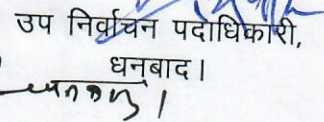 उप निर्वाचन पदाधिकारी,
धनबाद।